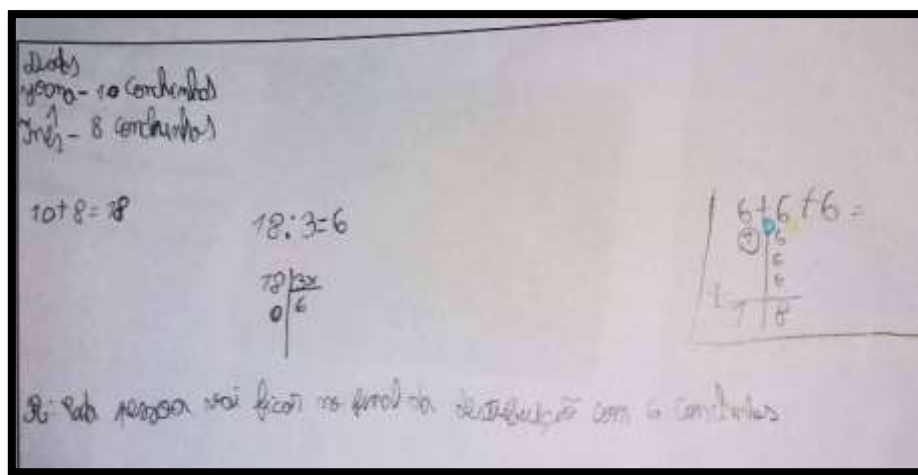 Dados
Joana - 10 conchinhas
Inês - 8 conchinhas
10+8=18
18:3=6
18 3x
0 6
6+6+6=
1 6
6
6
+
1 8
R: Cada pessoa vai ficar no final da distribuição com 6 conchinhas